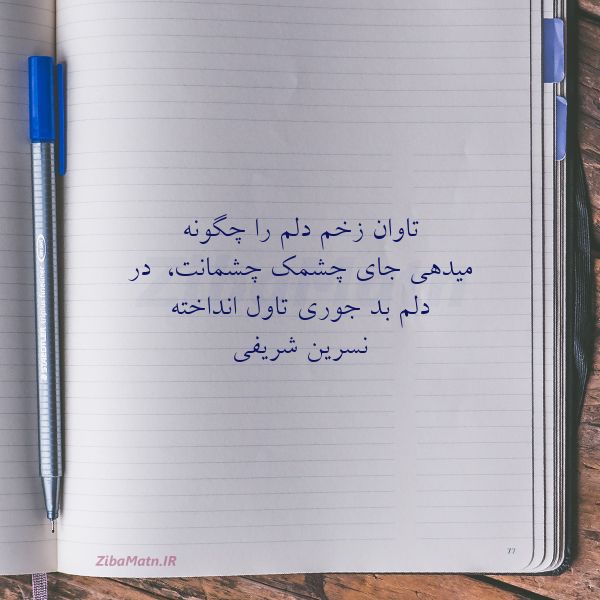 تاوان زخم دلم را چگونه
میدهی جای چشمک چشمانت، در
دلم بد جوری تاول انداخته
نسرین شریفی
ZibaMatn.IR
77